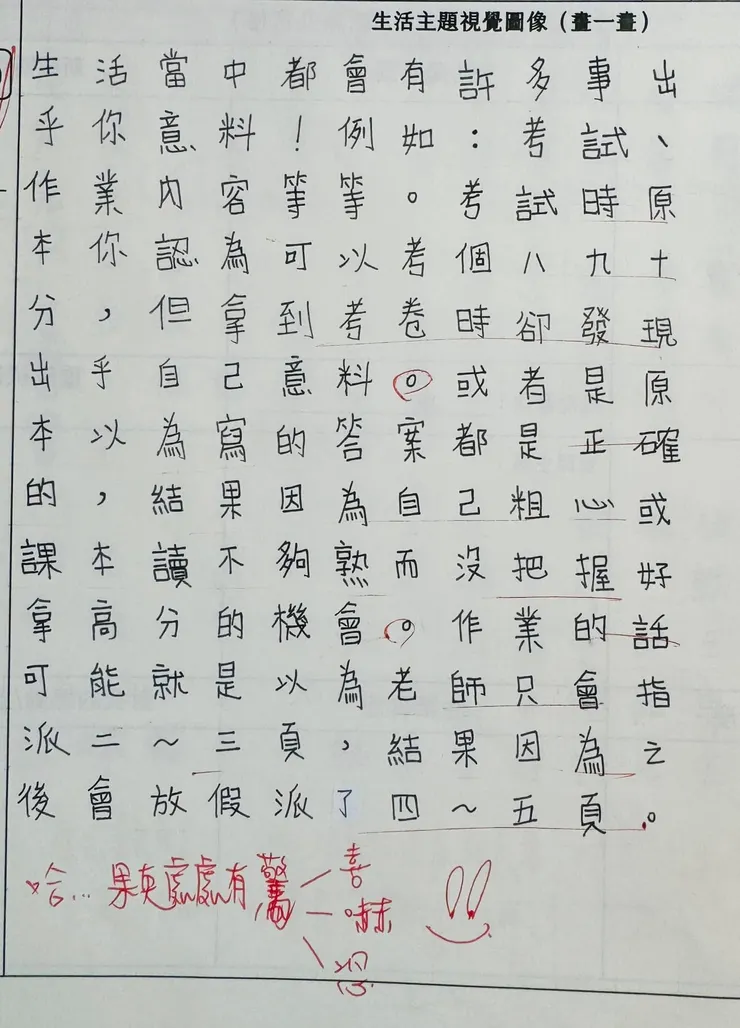 生活主題視覺圖像（畫一畫）
生活當中都會有許多事出
乎你意料！例如：考試、
作業內容等等。考試時原
本你認為可以考個八九十
分，但拿到考卷時卻發現
出乎自己意料。或者是原
本以為寫的答案都是正確
的，結果因為自己粗心或
課本讀不夠熟而沒把握好
拿高分的機會。作業的話
可能就是以為老師只會指
派二～三頁，結果因為之
後會放假派了四～五頁。
哈… 果真處處有驚
喜
嚇